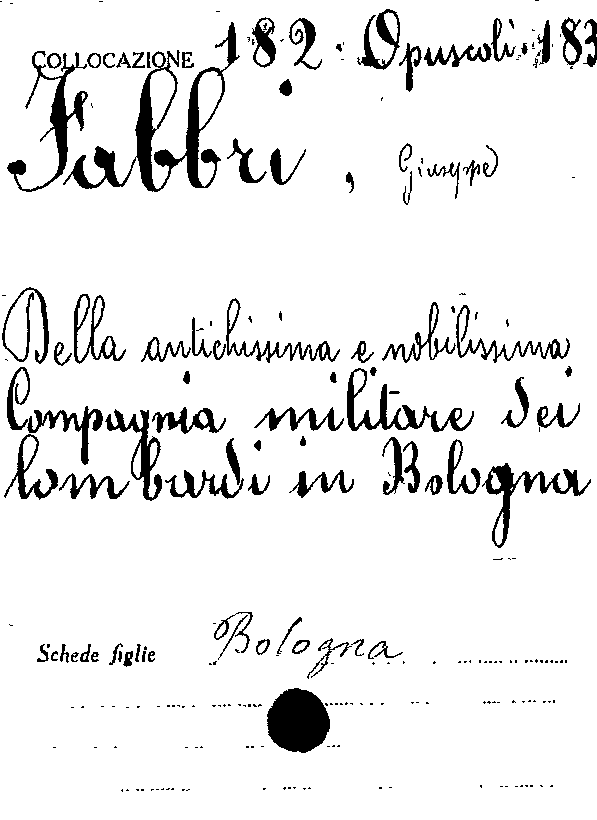 COLLOCAZIONE 182. Opuscoli. 183
Fabbri, Giuseppe
Della antichissima e nobilissima
Compagnia militare dei
lombardi in Bologna
Schede figlie Bologna